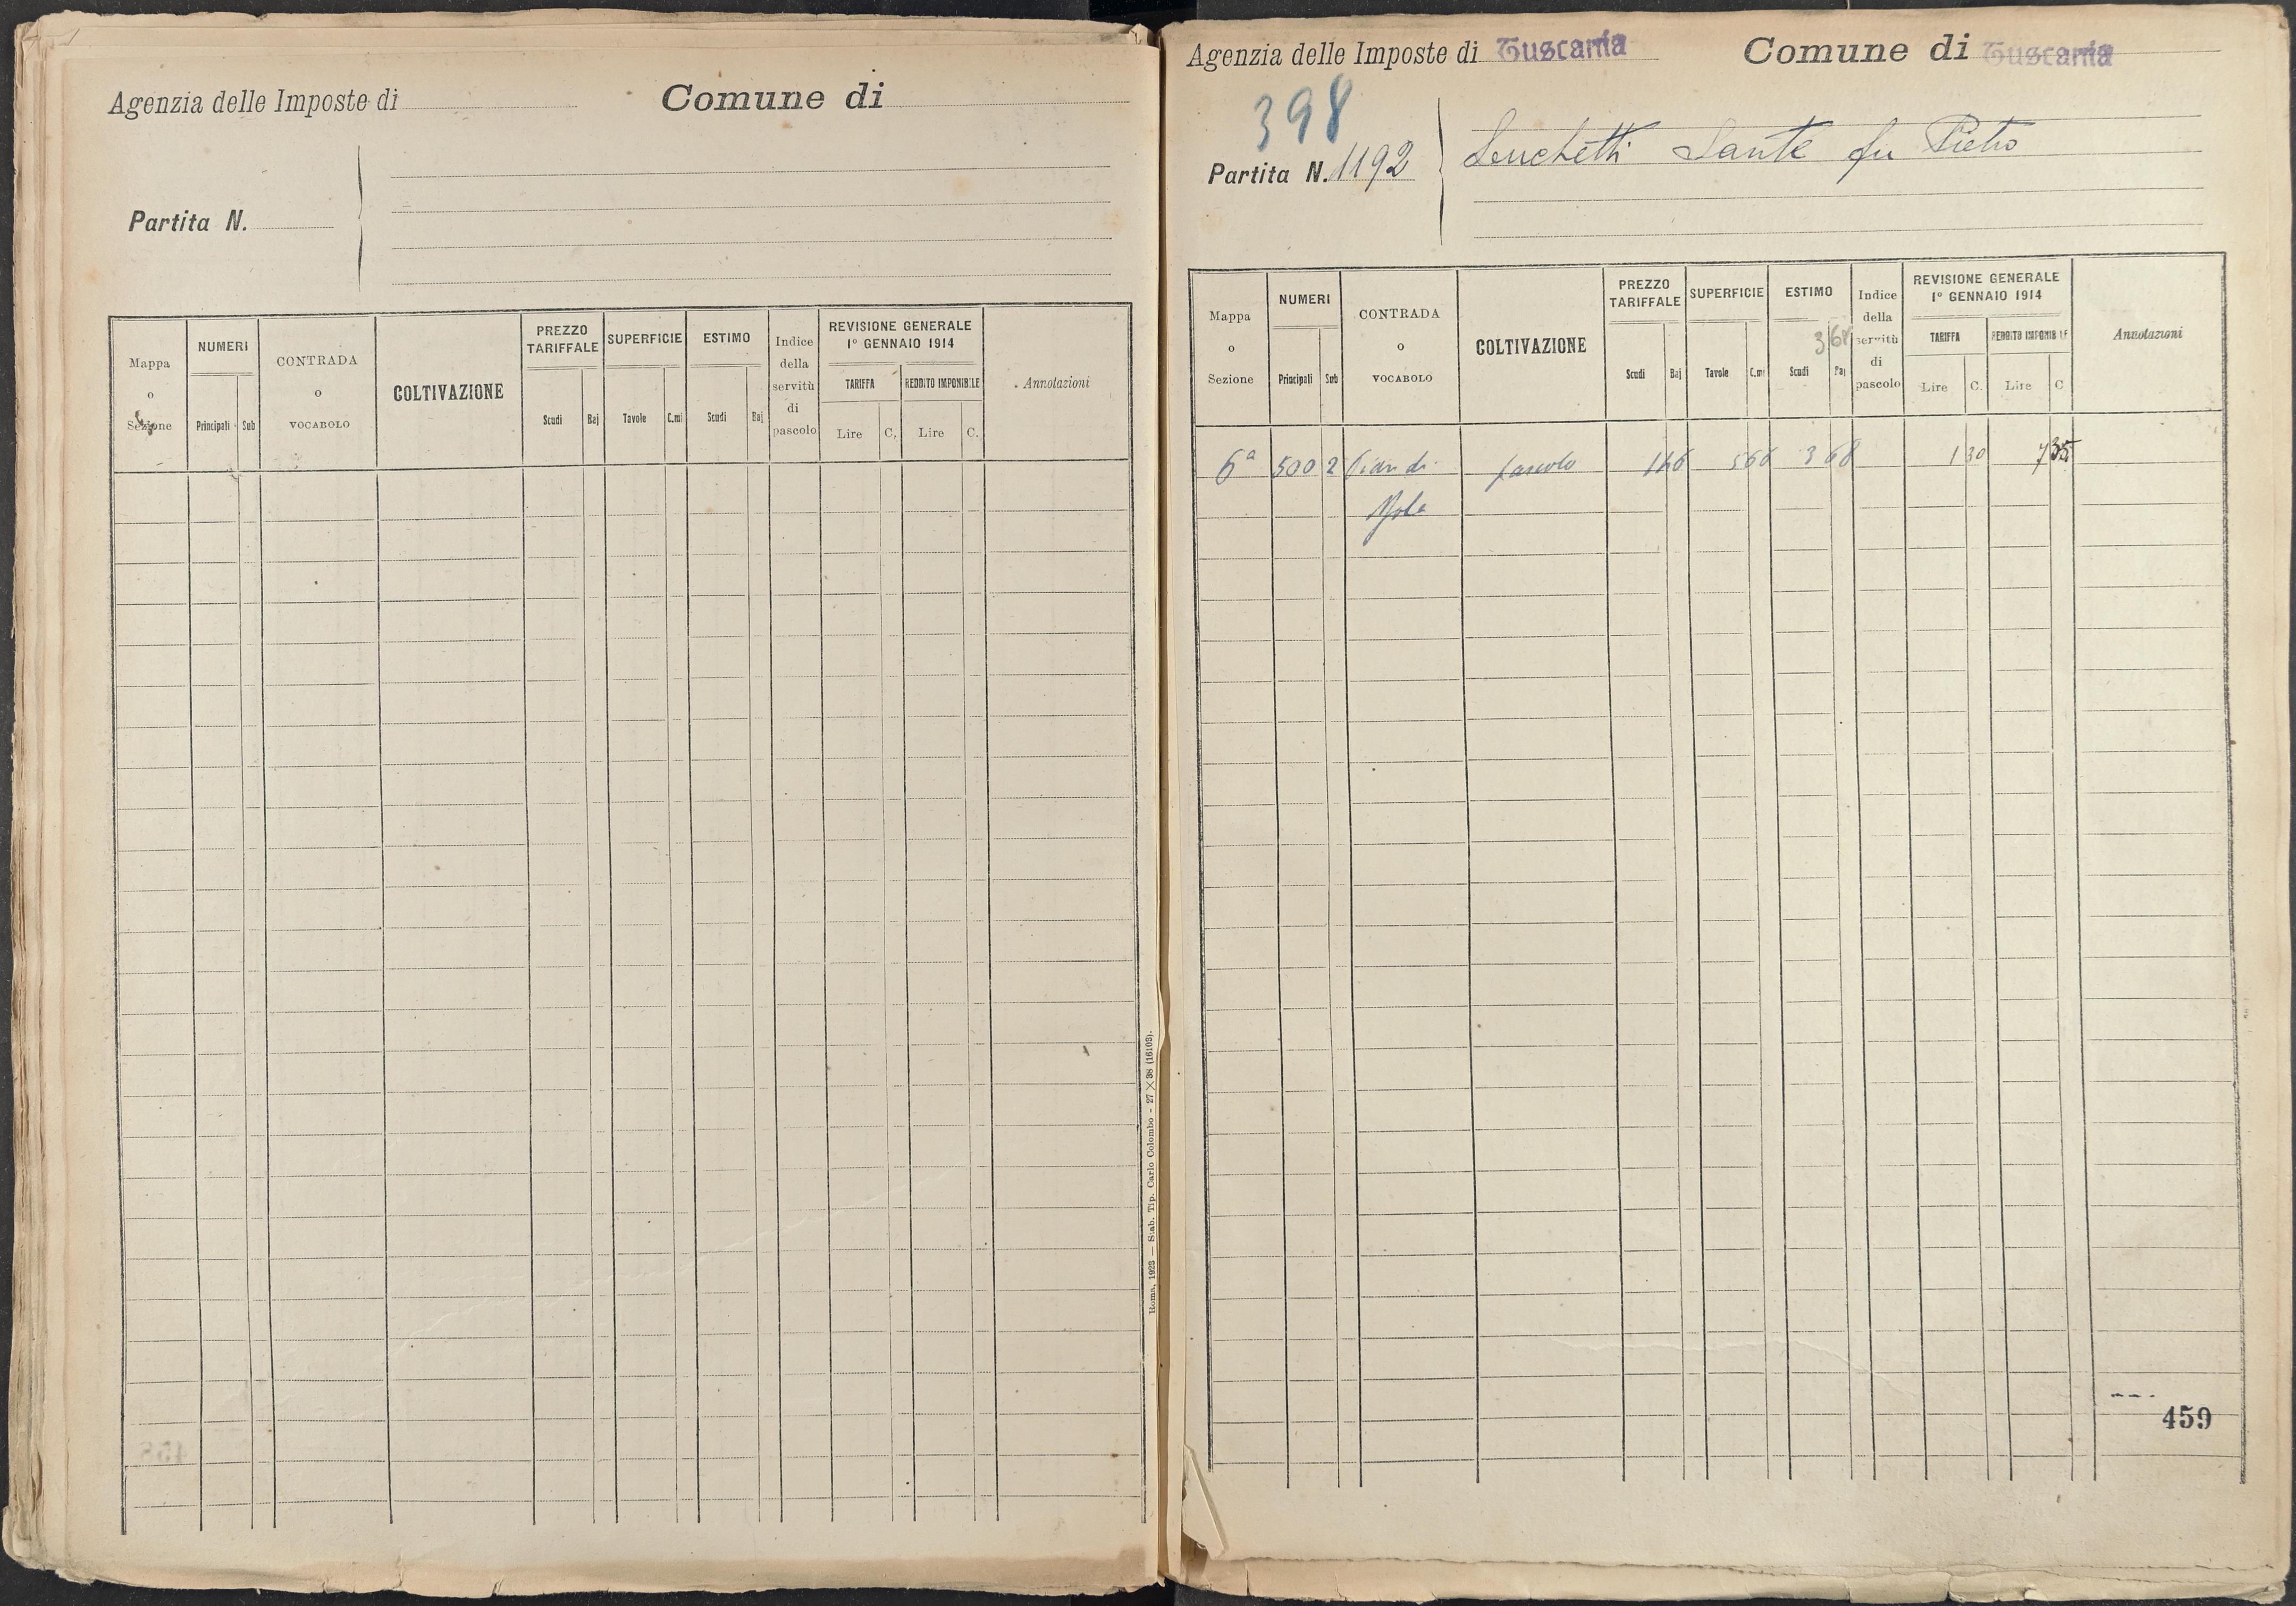 Agenzia delle Imposte di
Comune di
Partita N.
Mappa o Sezione
NUMERI
Principali
Sub
CONTRADA o VOCABOLO
COLTIVAZIONE
PREZZO TARIFFALE
Scudi
Baj
SUPERFICIE
Tavole
C.mi
ESTIMO
Scudi
Baj
Indice della servitù di pascolo
REVISIONE GENERALE
1° GENNAIO 1914
TARIFFA
Lire
C.
REDDITO IMPONIBILE
Lire
C.
Annotazioni
Roma, 1923 — Stab. Tip. Carlo Colombo - 27 X 38 (16103).
Agenzia delle Imposte di Tuscania
Comune di Tuscania
398
Partita N. 1192
Sante fu Pietro
Mappa o Sezione
NUMERI
Principali
Sub
CONTRADA o VOCABOLO
COLTIVAZIONE
PREZZO TARIFFALE
Scudi
Baj
SUPERFICIE
Tavole
C.mi
ESTIMO
368
Scudi
Baj
Indice della servitù di pascolo
REVISIONE GENERALE
1° GENNAIO 1914
TARIFFA
Lire
C.
REDDITO IMPONIBILE
Lire
C
Annotazioni
6ª 500 2 Pian di pascolo 566 3 68 1 30 7 35
Mola
459